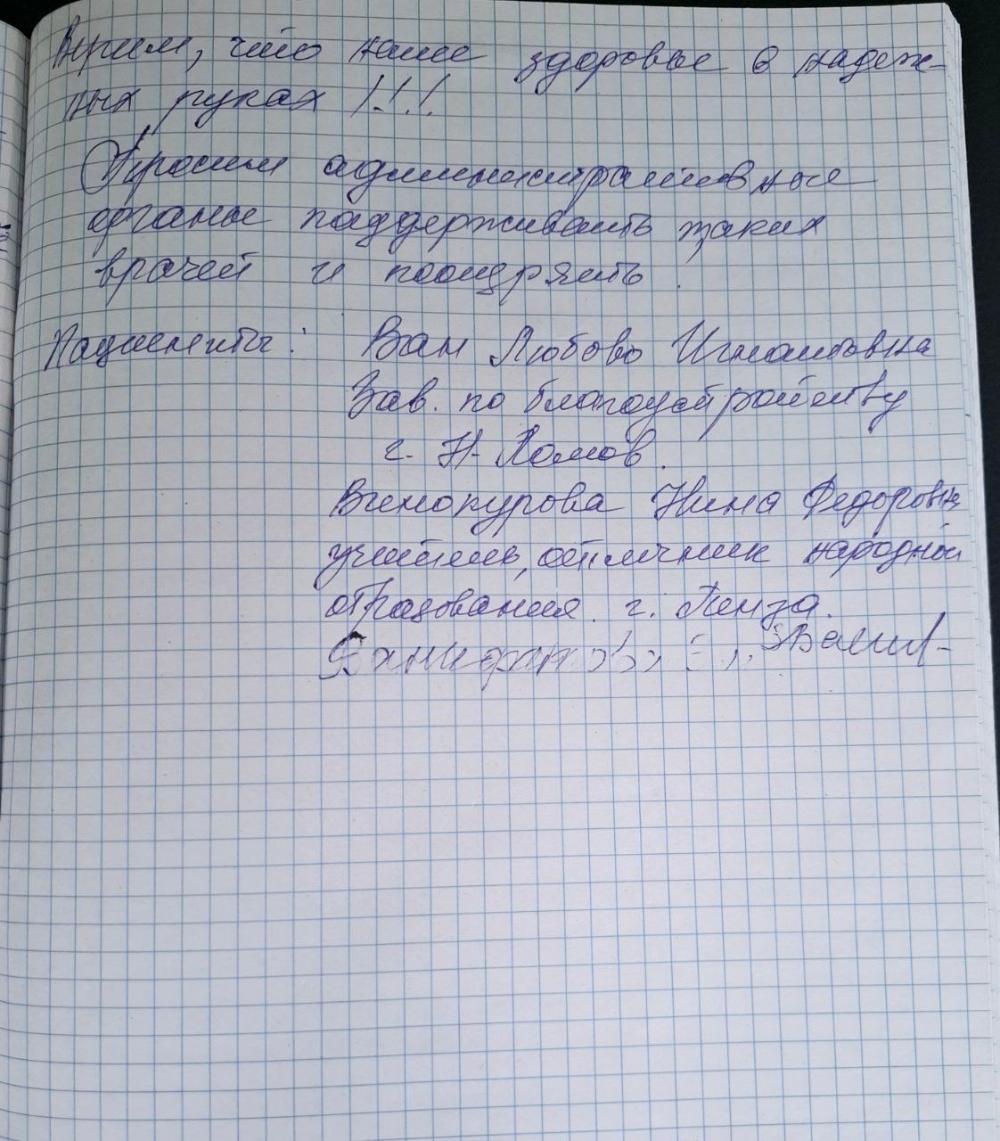 Верим, что наше здоровье в надеж-
ных руках !!!
Просим административные
органы поддерживать таких
врачей и поощрять.
Пациенты: Ван Любовь Игнатовна
Зав. по благоустройству
г. Н-Ломов.
Винокурова Нина Федоровна
учитель, отличник народной
образования г. Пенза.